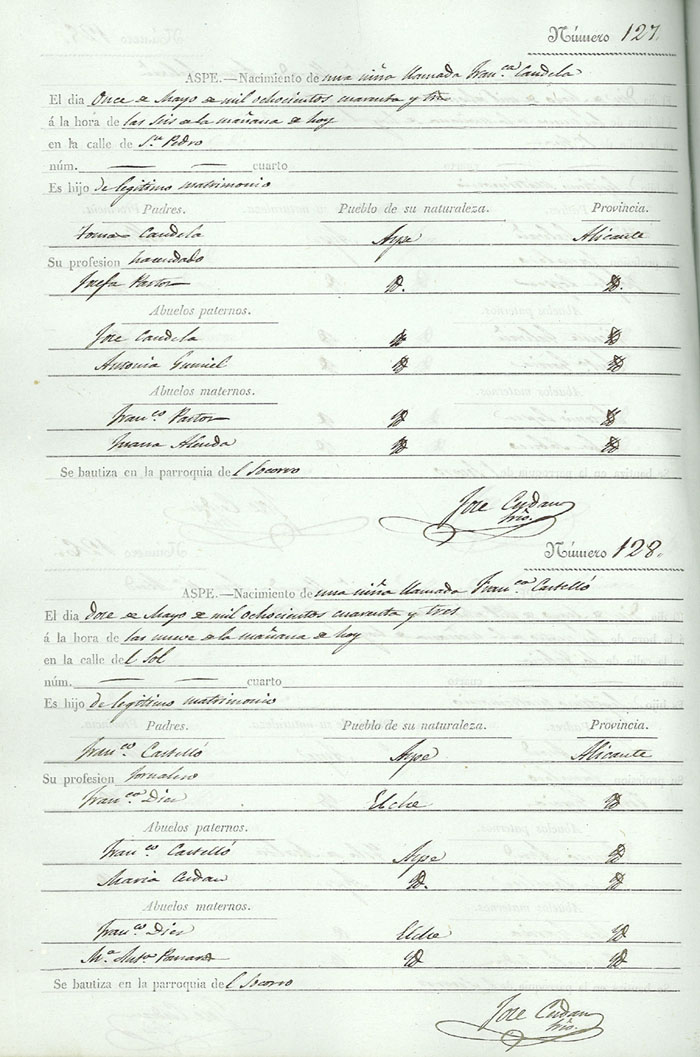 Número 127.
ASPE.—Nacimiento de una niña llamada Fran.ca Candela
El dia Once de Mayo de mil ochocientos cuarenta y tres
á la hora de las seis de la mañana de hoy
en la calle de Sn Pedro
núm. — — cuarto
Es hijo de legitimo matrimonio
Padres. Pueblo de su naturaleza. Provincia.
Tomas Candela Aspe Alicante
Su profesion hacendado
Josefa Pastor Yd. Yd.
Abuelos paternos.
Jose Candela Yd Yd
Antonia Yd Yd
Abuelos maternos.
Fran.co Pastor Yd Yd
Yd Yd
Se bautiza en la parroquia del Socorro
Jose Cerdan
Srio.
Número 128.
ASPE.—Nacimiento de una niña llamada Fran.ca Castelló
El dia doce de Mayo de mil ochocientos cuarenta y tres
á la hora de las nueve de la mañana de hoy
en la calle del Sol
núm. — — cuarto
Es hijo de legitimo matrimonio
Padres. Pueblo de su naturaleza. Provincia.
Fran.co Castelló Aspe Alicante
Su profesion Jornalero
Fran.ca Diez Elche Yd
Abuelos paternos.
Fran.co Castelló Aspe Yd
Maria Cerdan Yd. Yd
Abuelos maternos.
Fran.co Diez Elche Yd
M.a Ant.a Yd Yd
Se bautiza en la parroquia del Socorro
Jose Cerdan
Srio.